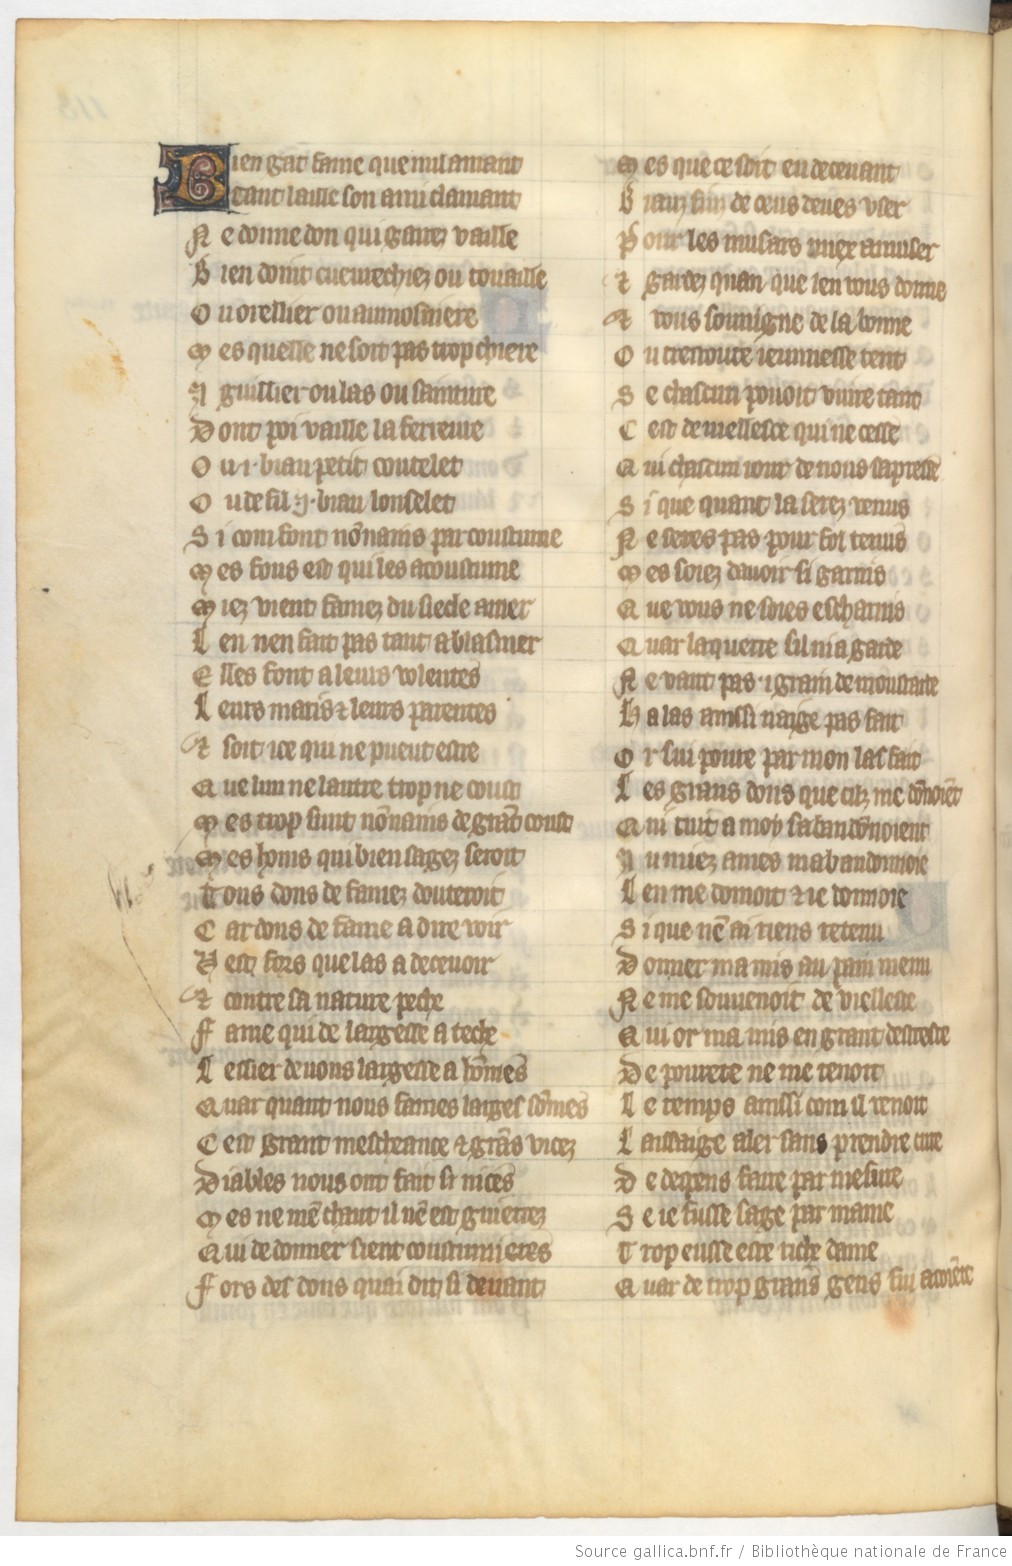 Bien gart fame que nul amant
Tant laisse son ami clamant
Ne donne don qui gaires vaille
Bien doint cueurechiez ou touaille
Ou orellier ou aumosniere
Mes quelle ne soit pas trop chiere
Aguillier ou las ou sainture
Dont poi vaille la ferreure
Ou .i. biau petit coutelet
Ou de fil .i. biau lonselet
Si com font nōnains par coustume
Mes fous est qui les acoustume
Miez vient famez du siecle amer
Len nen fait pas tant a blasmer
Elles font a leurs volentes
Leurs maris ⁊ leurs parentes
⁊ soit ice qui ne pueut estre
Que lun ne lautre trop ne coust
Mes trop sunt nōnains de grāt coust
Mes homs qui bien sagez seroit
Tous dons de famez douteroit
Car dons de fame a dire voir
Nest fors que las a decevoir
⁊ contre sa nature peche
Fame qui de largesse a teche
Lessier devons largesse a hōmes
Quar quant nous fames larges sōmes
Cest grant mescheance ⁊ grās vicez
Diables nous ont fait si nices
Mes ne mē chaut il nē est guierez
Qui de donner sient coustumieres
Fors des dons quai dit ci devant
Mes que ce soit en decevant
Biaus fuiz de ceus deves user
Pour les musars miex amuser
⁊ gardez quan que len vous donne
⁊ vous souviegne de la bonne
Ou trestoute ieunnesse tent
Se chascun povoit vivre tant
Cest de viellesce qui ne cesse
Qui chascun iour de nous sapresse
Si que quant la serez venus
Ne seres pas pour fol tenus
Mes soiez davoir si garnis
Que vous ne soies escharnis
Quar laquerre sil nia garde
Ne vaut pas .i. grain de moustarde
Halas ainssi naige pas fait
Or sui povre par mon las fait
Les grans dons que cilz me dōnoiēt
Qui tuit a moy sabandōnoient
Au miez ames mabandonnoie
Len me donnoit ⁊ ie donnoie
Si que nē ai riens retenu
Donner ma mis au pain menu
Ne me souvenoit de viellesce
Qui or ma mis en grant destresse
De povrete ne me tenoit
Le temps ainssi com il venoit
Laissaige aler sans prendre cure
De depens faire par mesure
Se ie fusse sage par mame
Trop eusse este riche dame
Quar de trop grans gens fui acointe
Source gallica.bnf.fr / Bibliothèque nationale de France